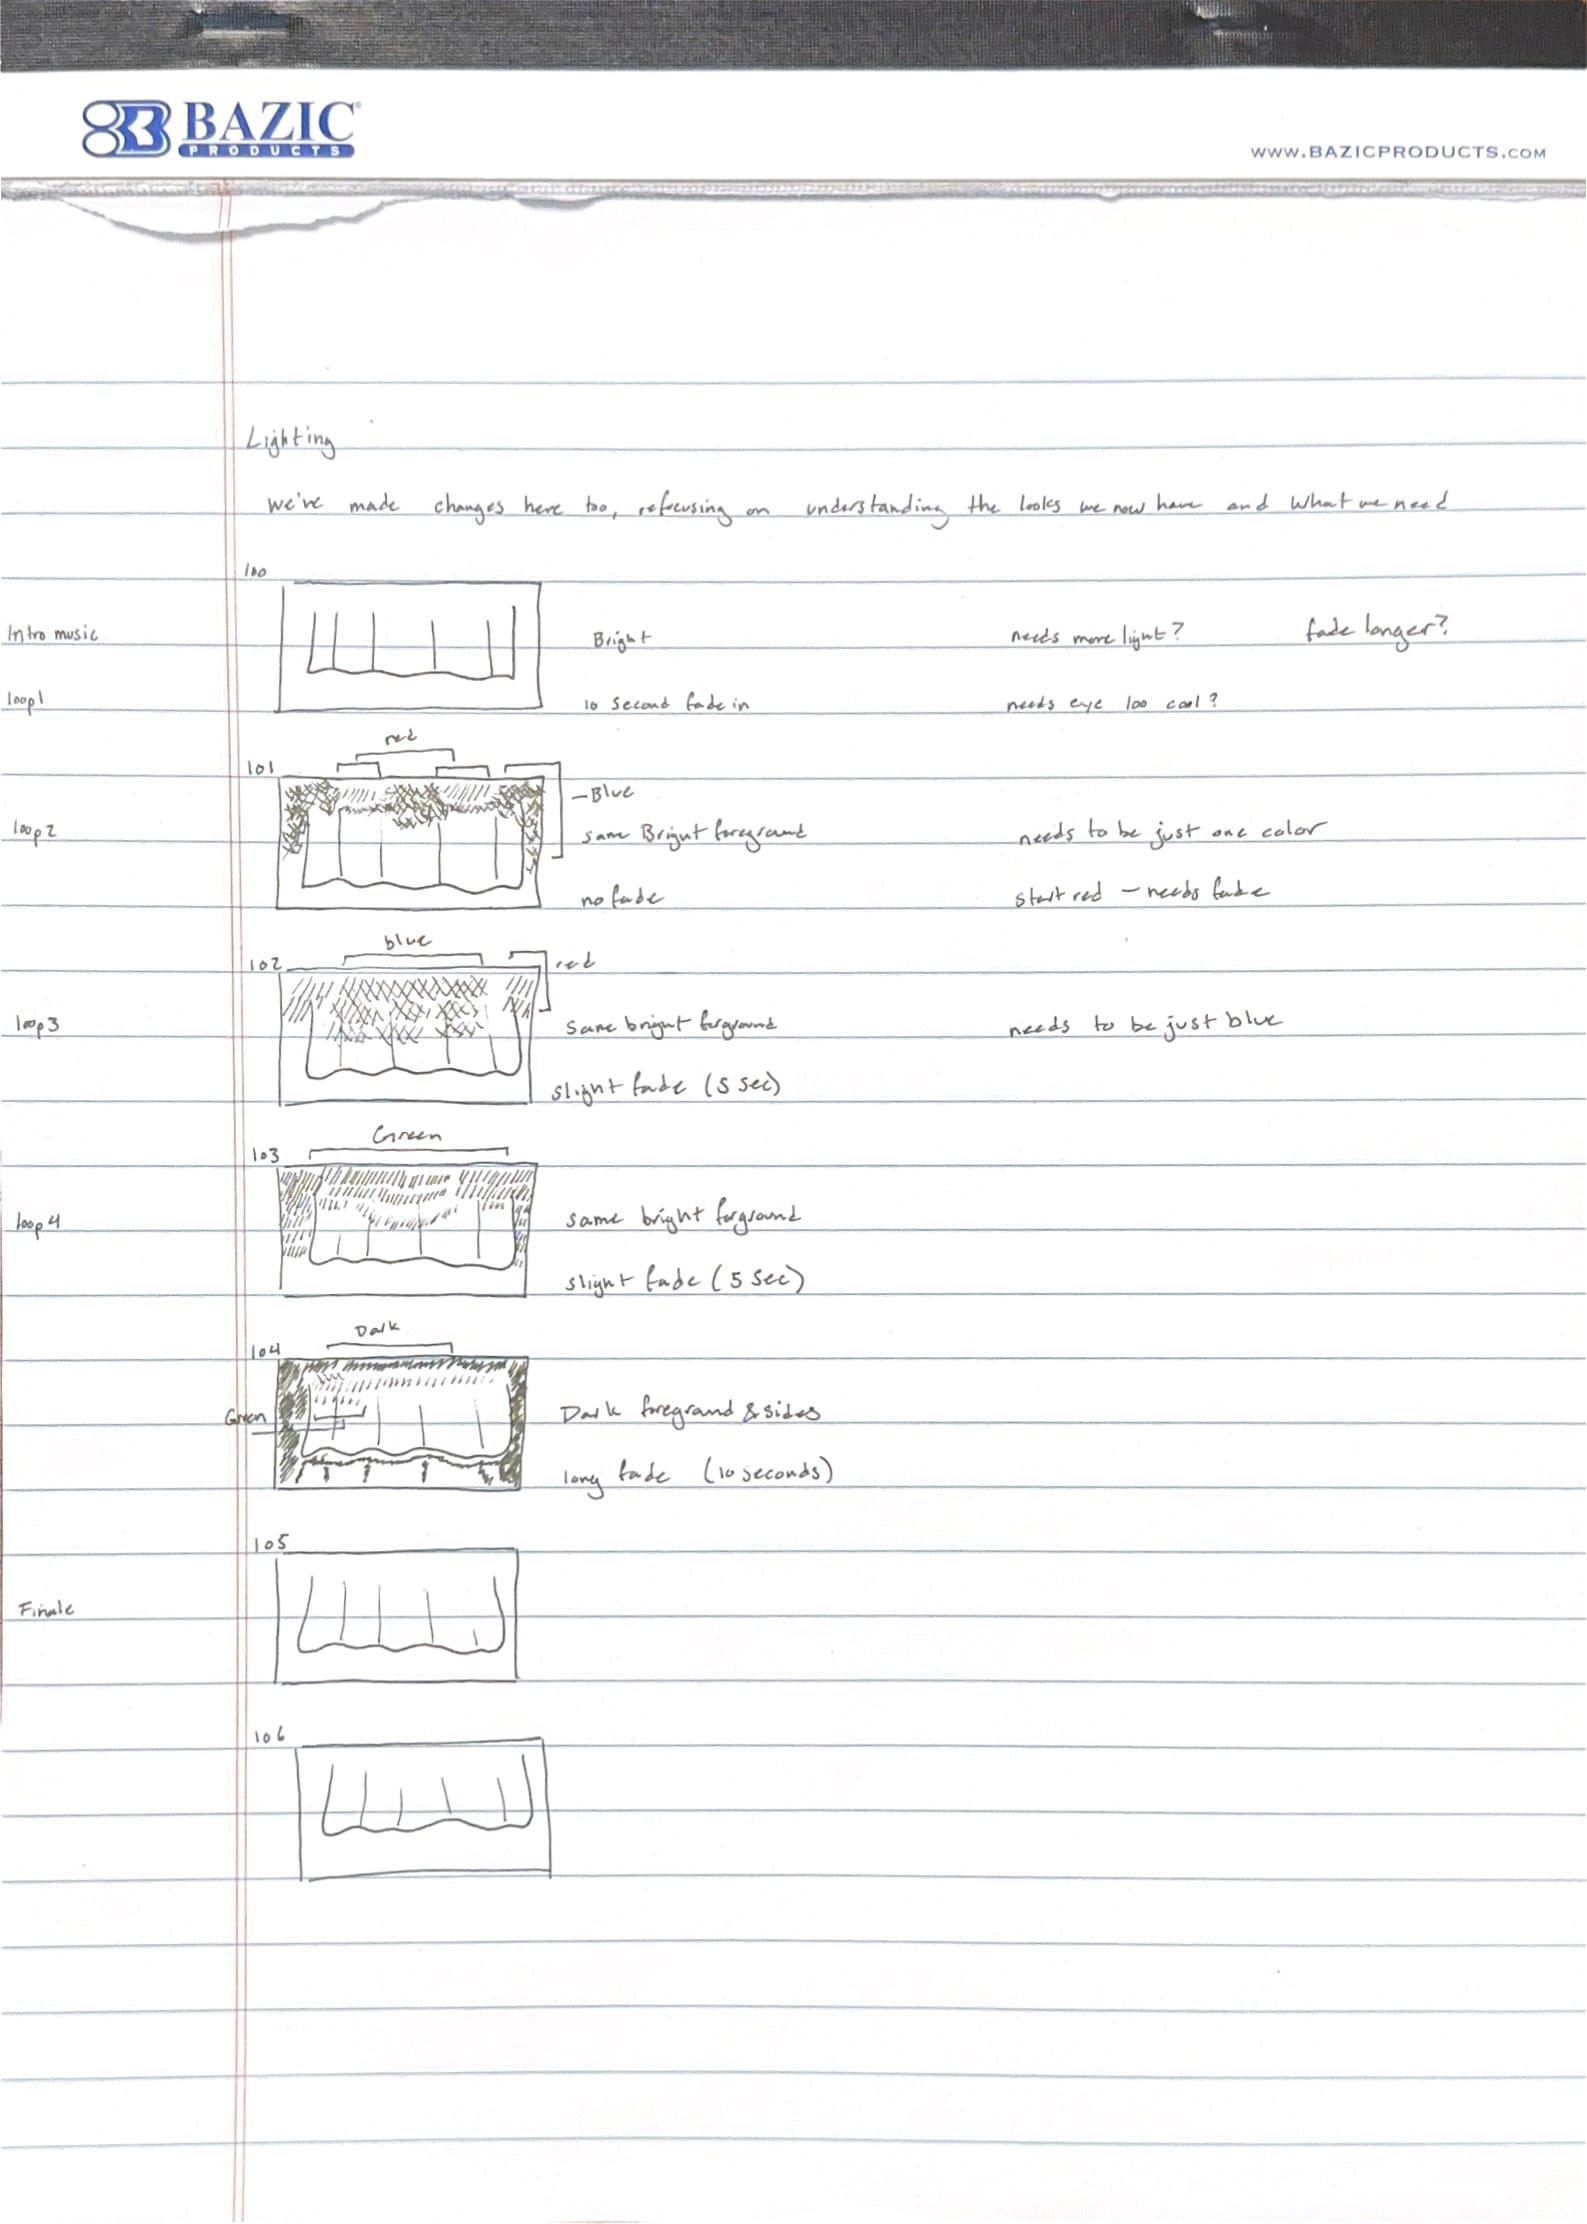 BAZIC
PRODUCTS
WWW.BAZICPRODUCTS.COM
Lighting
we've made changes here too, refocusing on understanding the looks we now have and what we need
100
Intro music
Bright
needs more light?
fade longer?
loop1
10 second fade in
needs eye 100 cool?
red
101
-Blue
loop2
same Bright foreground
needs to be just one color
no fade
start red - needs fade
blue
102
red
loop3
same bright forground
needs to be just blue
slight fade (5 sec)
Green
103
loop4
same bright forground
slight fade (5 sec)
Dark
104
Green
Dark foreground & sides
long fade (10 seconds)
105
Finale
106